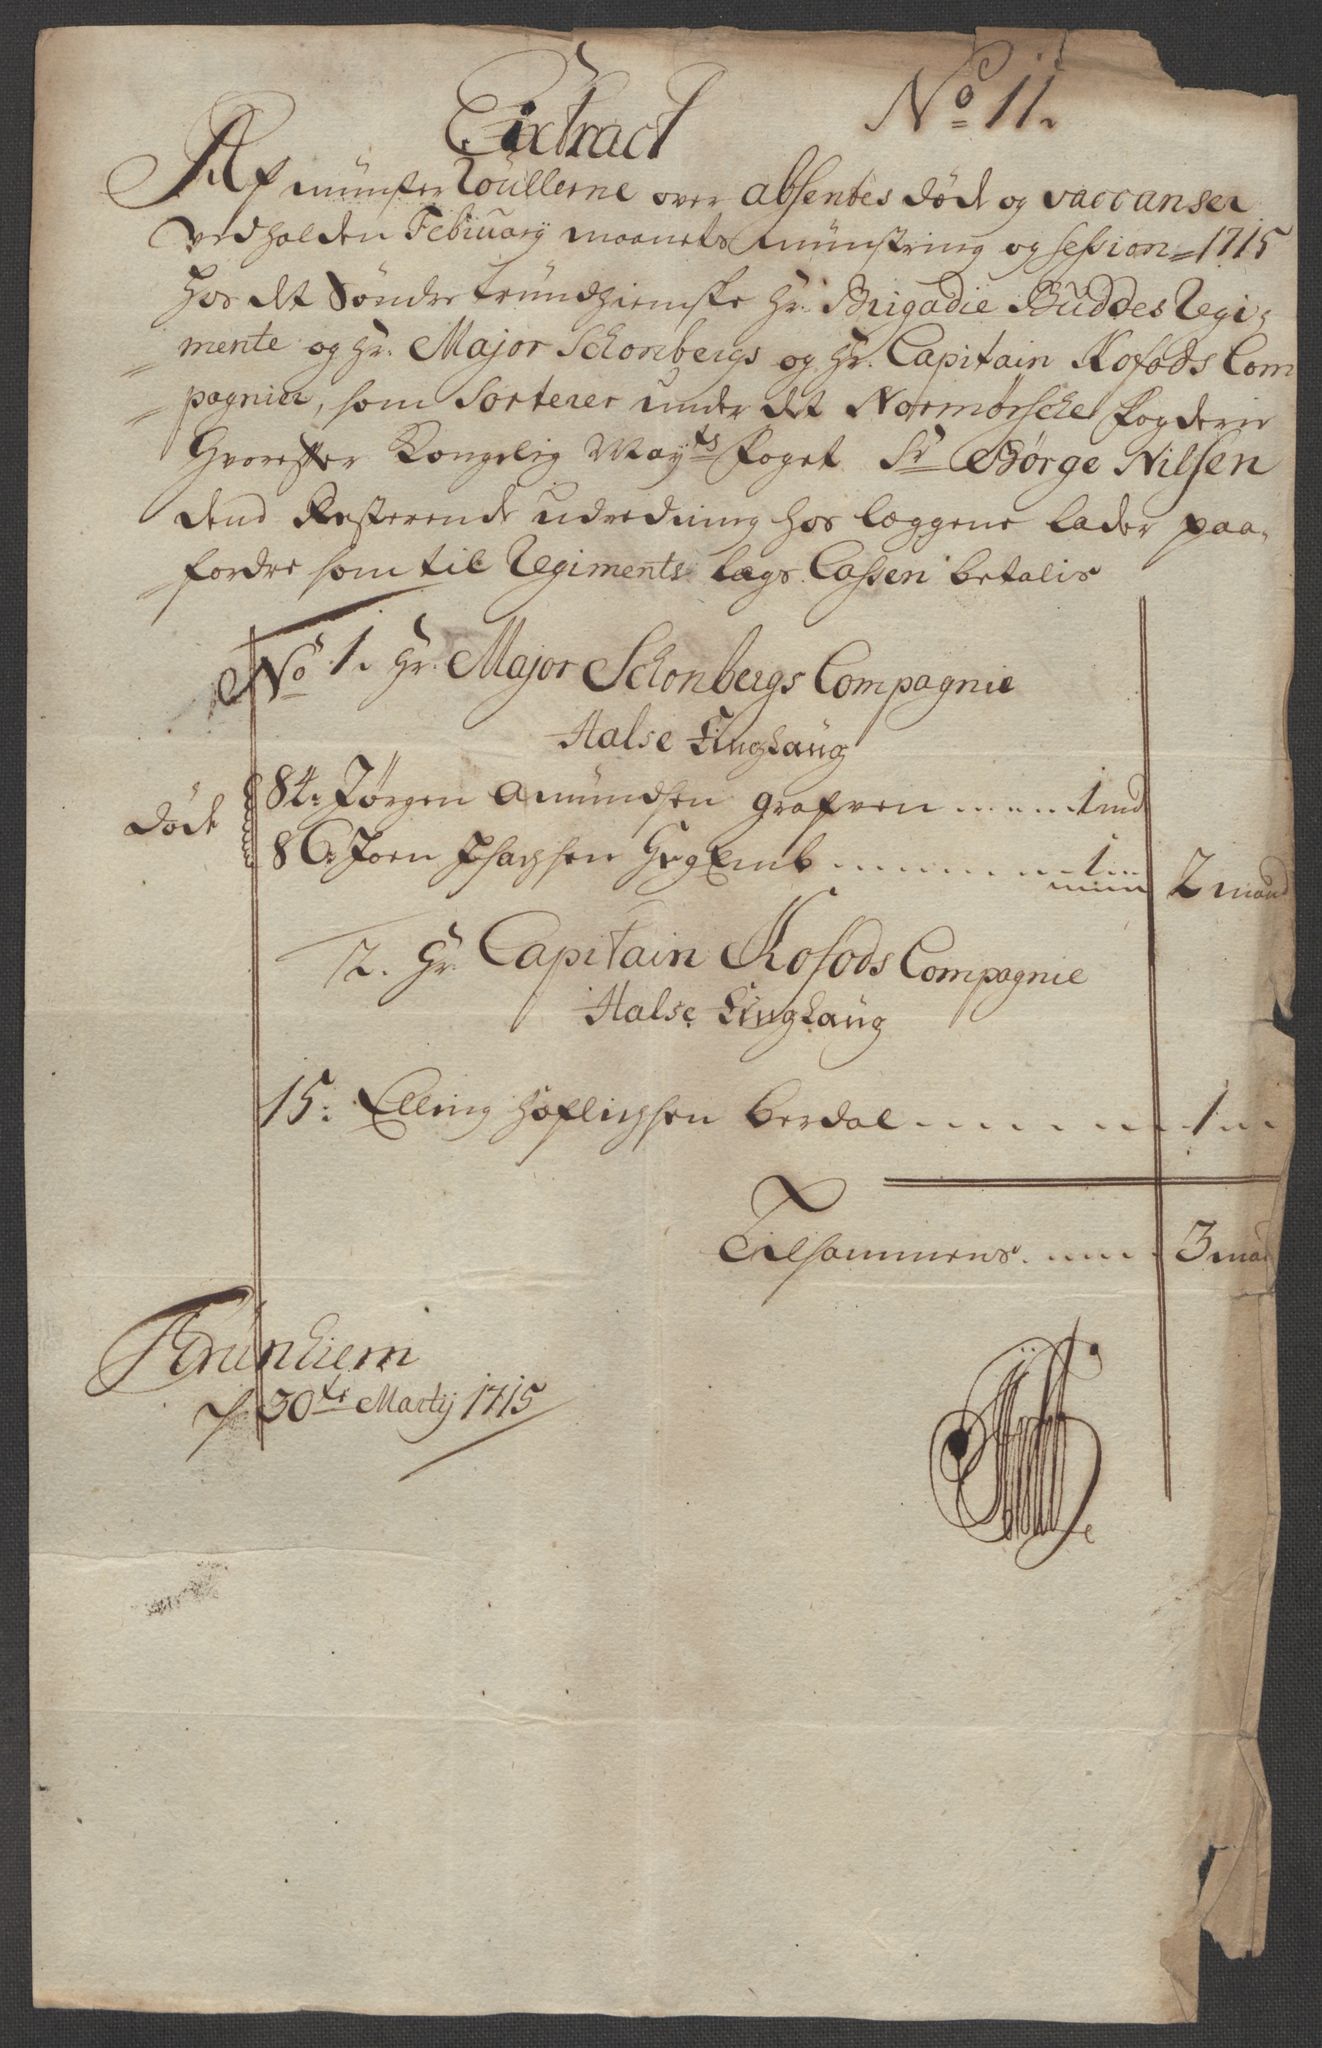 No 11.
Extract
Af münster Roullerne over absentes døde og vaccanser
ved holden February maanets münstring og session 1715
hos det Søndre trundhiemske Hr. Brigadie Buddes Regi-
mente og Hr. Major Schonbergs og Hr. Capitain Kofods Com
pagnier, som Sorterer under det Normørsche fogderie
Hvorefter Kongelig May.ts foget Sr Børge Nilsen
dend Resterende udredning hos læggene lader paa-
fordre som til Regiments lægs Cassen betalis
No 1. Hr. Major Schonbergs Compagnie
Halse Tinglaug
Døde
84. Jørgen Amundsen Grafven 1 md
86. Joen Isachsen 1
2 mand
2. Hr. Capitain Kofods Compagnie
Halse Tinglaug
15. Elling Berdal 1
Tilsammens 3 man
Trünhiem
30te Martij 1715